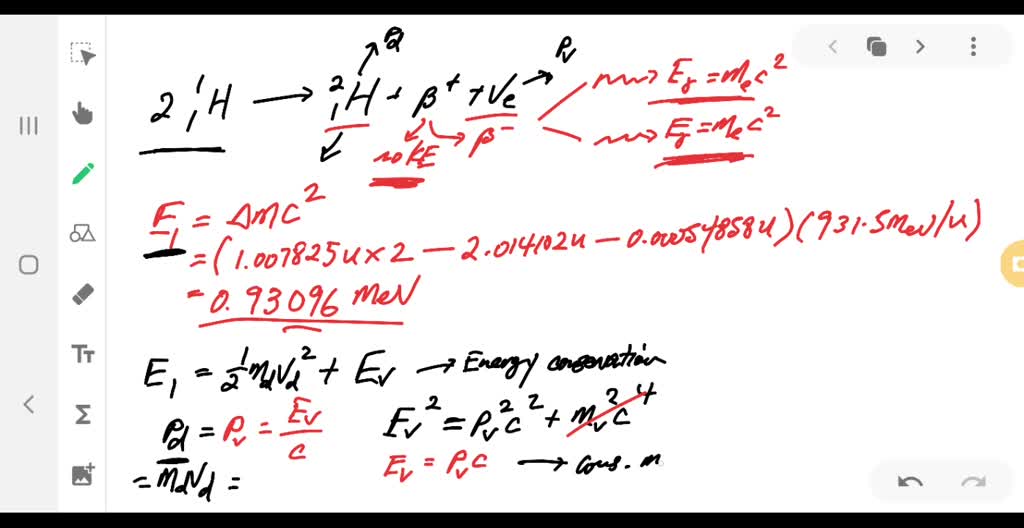 P_d
P_ν
2 ¹₁H → ²₁H + β⁺ + ν_e
E_γ = m_e c²
no KE
β⁻
E_γ = m_e c²
E₁ = Δmc²
= (1.007825u × 2 − 2.014102u − 0.00054858u)(931.5 MeV/u)
= 0.93096 MeV
E₁ = ½ m_d V_d² + E_ν → Energy conservation
P_d = P_ν = E_ν/c
E_ν² = P_ν² c² + m_ν² c⁴
E_ν = P_ν c → Cons. m
= m_d V_d =
Tт
Σ